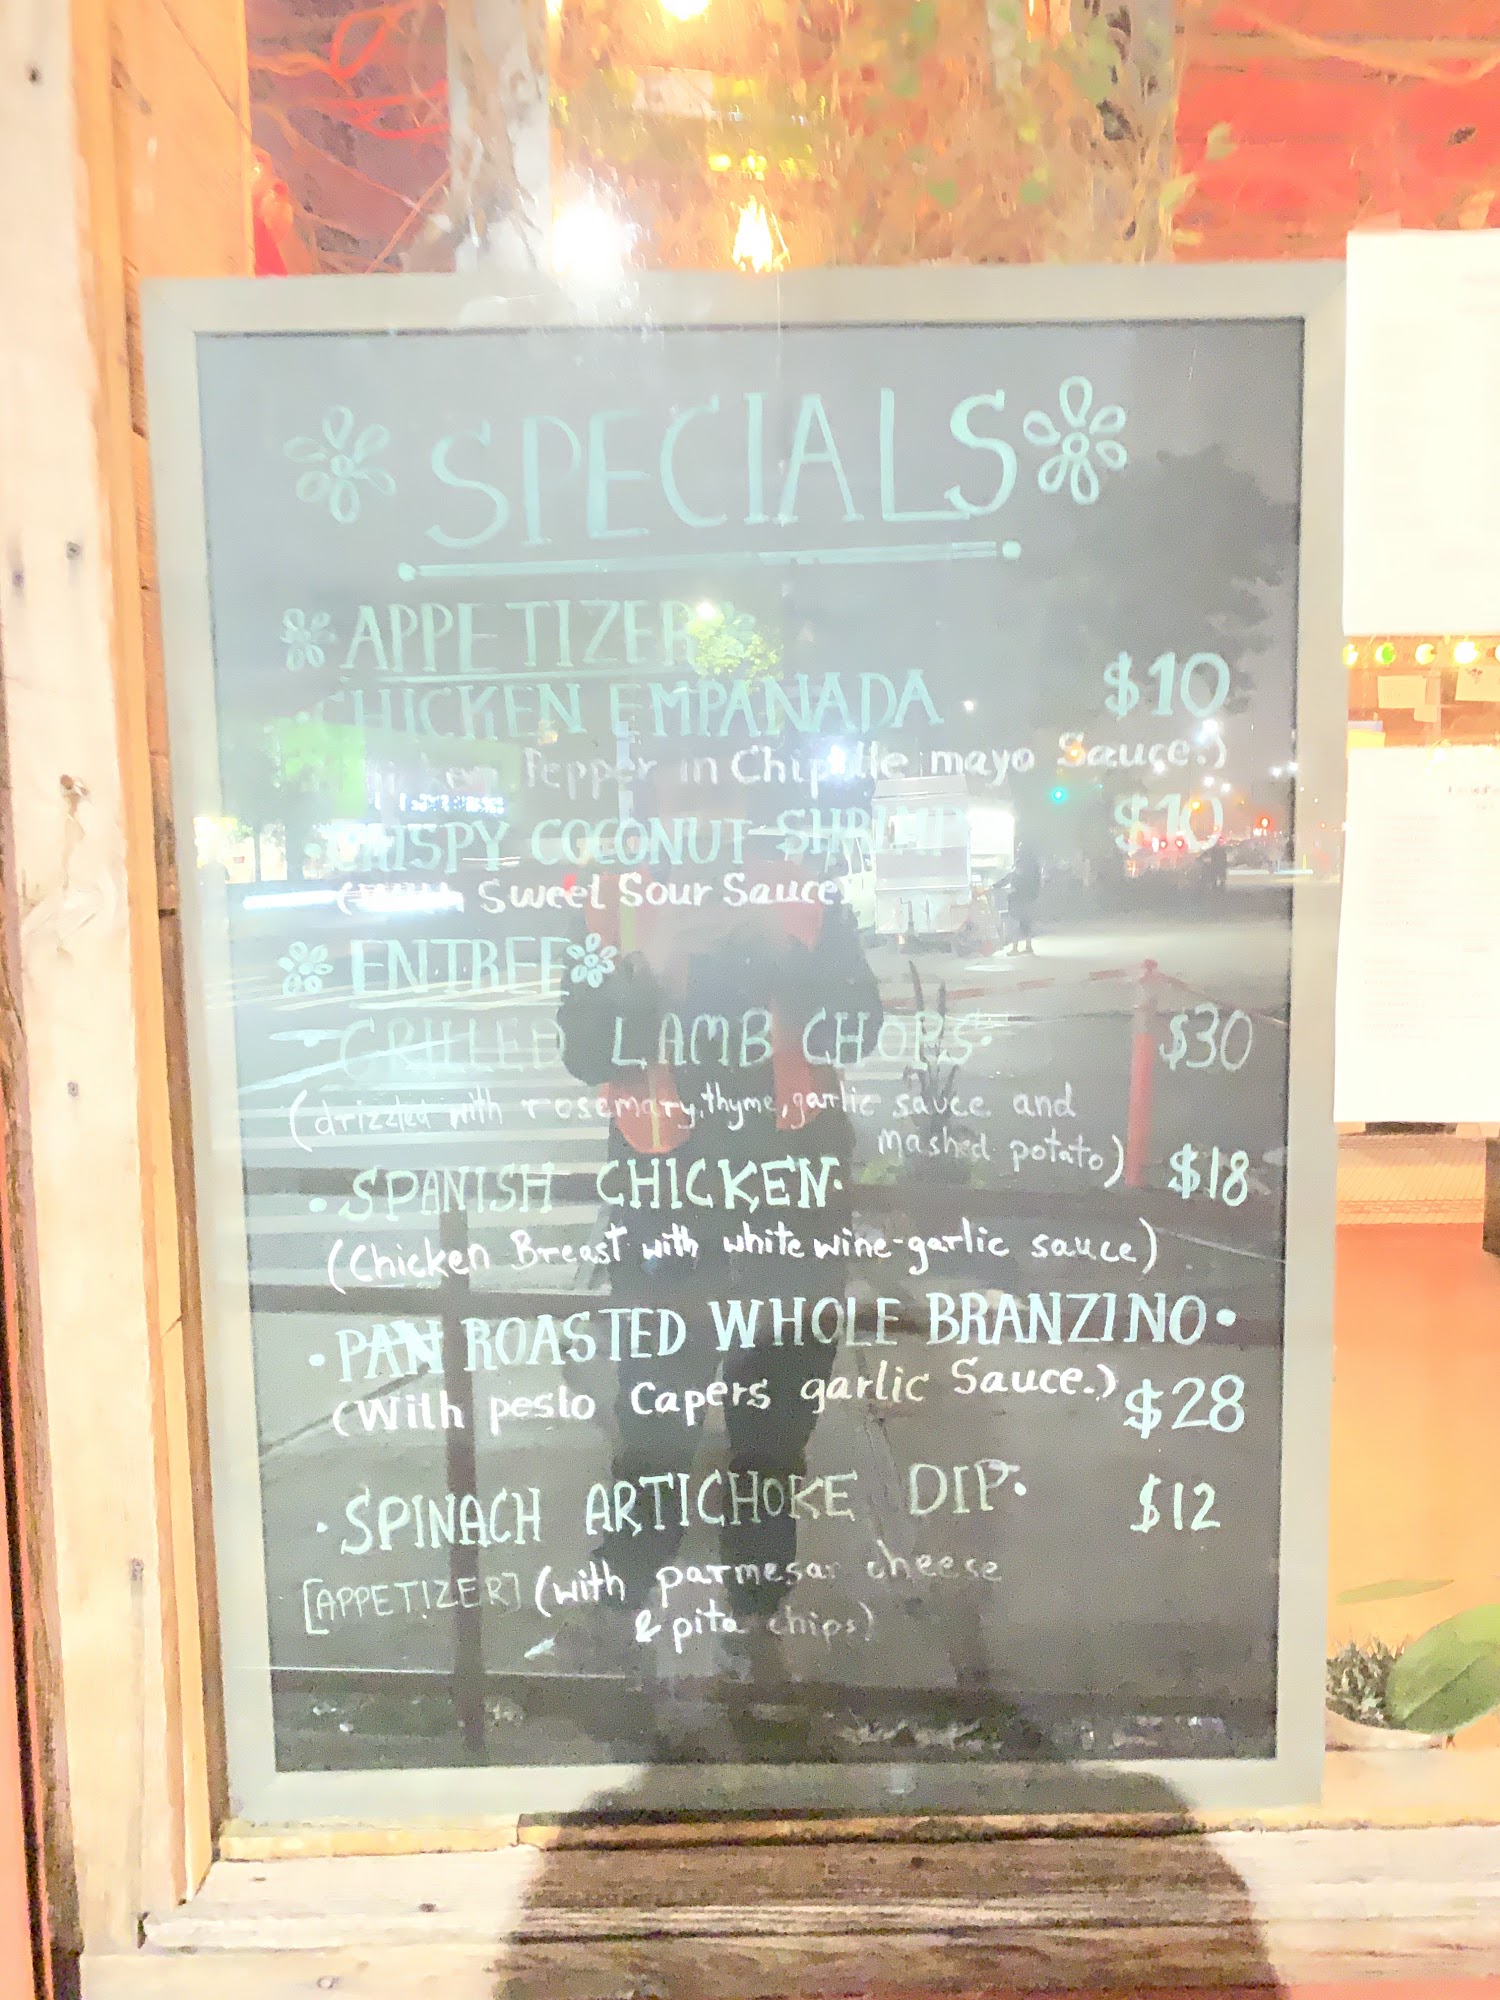 SPECIALS
APPETIZER
CHICKEN EMPANADA $10
Pepper in Chipotle mayo Sauce.)
CRISPY COCONUT SHRIMP $10
(With Sweet Sour Sauce)
ENTREE
GRILLED LAMB CHOPS. $30
(drizzled with rosemary, thyme, garlic sauce and
mashed potato)
• SPANISH CHICKEN. $18
(Chicken Breast with white wine-garlic sauce)
• PAN ROASTED WHOLE BRANZINO •
(With pesto Capers garlic Sauce.) $28
• SPINACH ARTICHOKE DIP. $12
[APPETIZER] (with parmesan cheese
& pita chips)